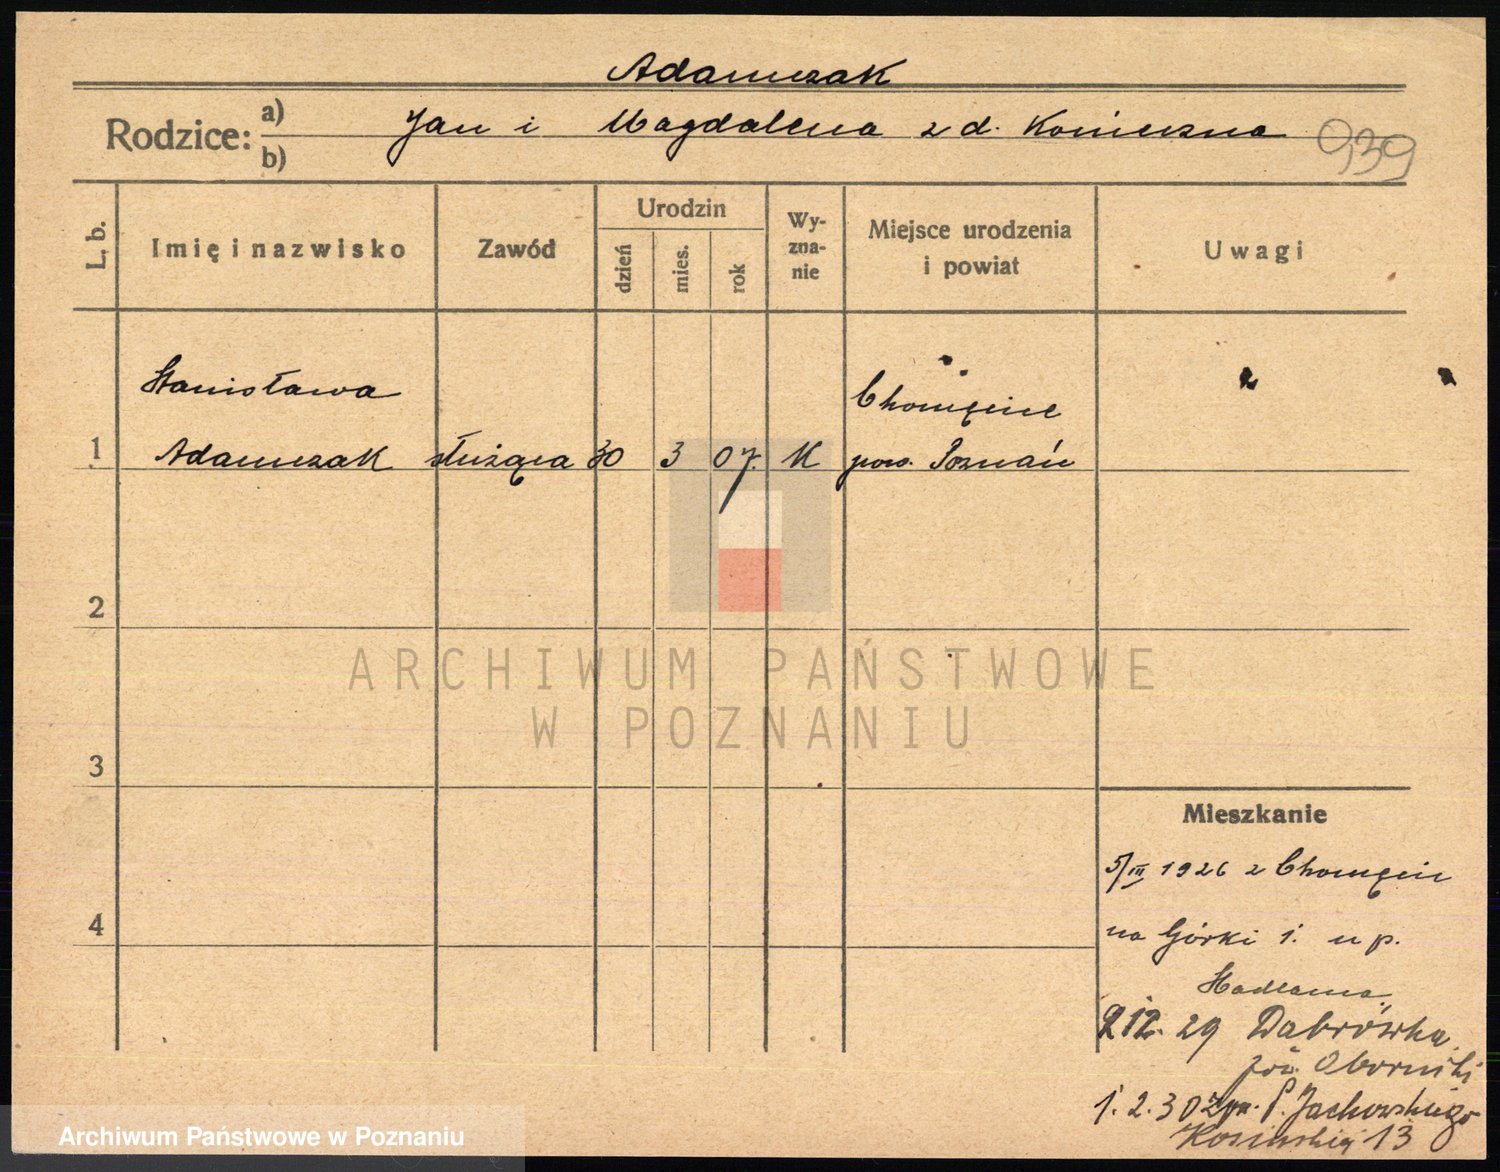 Adamczak
Rodzice: a) Jan i Magdalena z d. Konieczna
b)
939
L. b.
Imię i nazwisko
Zawód
Urodzin
dzień
mies.
rok
Wy-
zna-
nie
Miejsce urodzenia
i powiat
Uwagi
Stanisława
Chomęcice
1 Adamczak służąca 30 3 07. K pow. Poznań
2
3
4
ARCHIWUM PAŃSTWOWE
W POZNANIU
Mieszkanie
5/III 1926 z Chomęcic
na Górki 1. u p.
212. 29 Dabrówka
pow. Obornicki
1. 2. 30 p. Jackowskiego
Kosińskiej 13
Archiwum Państwowe w Poznaniu